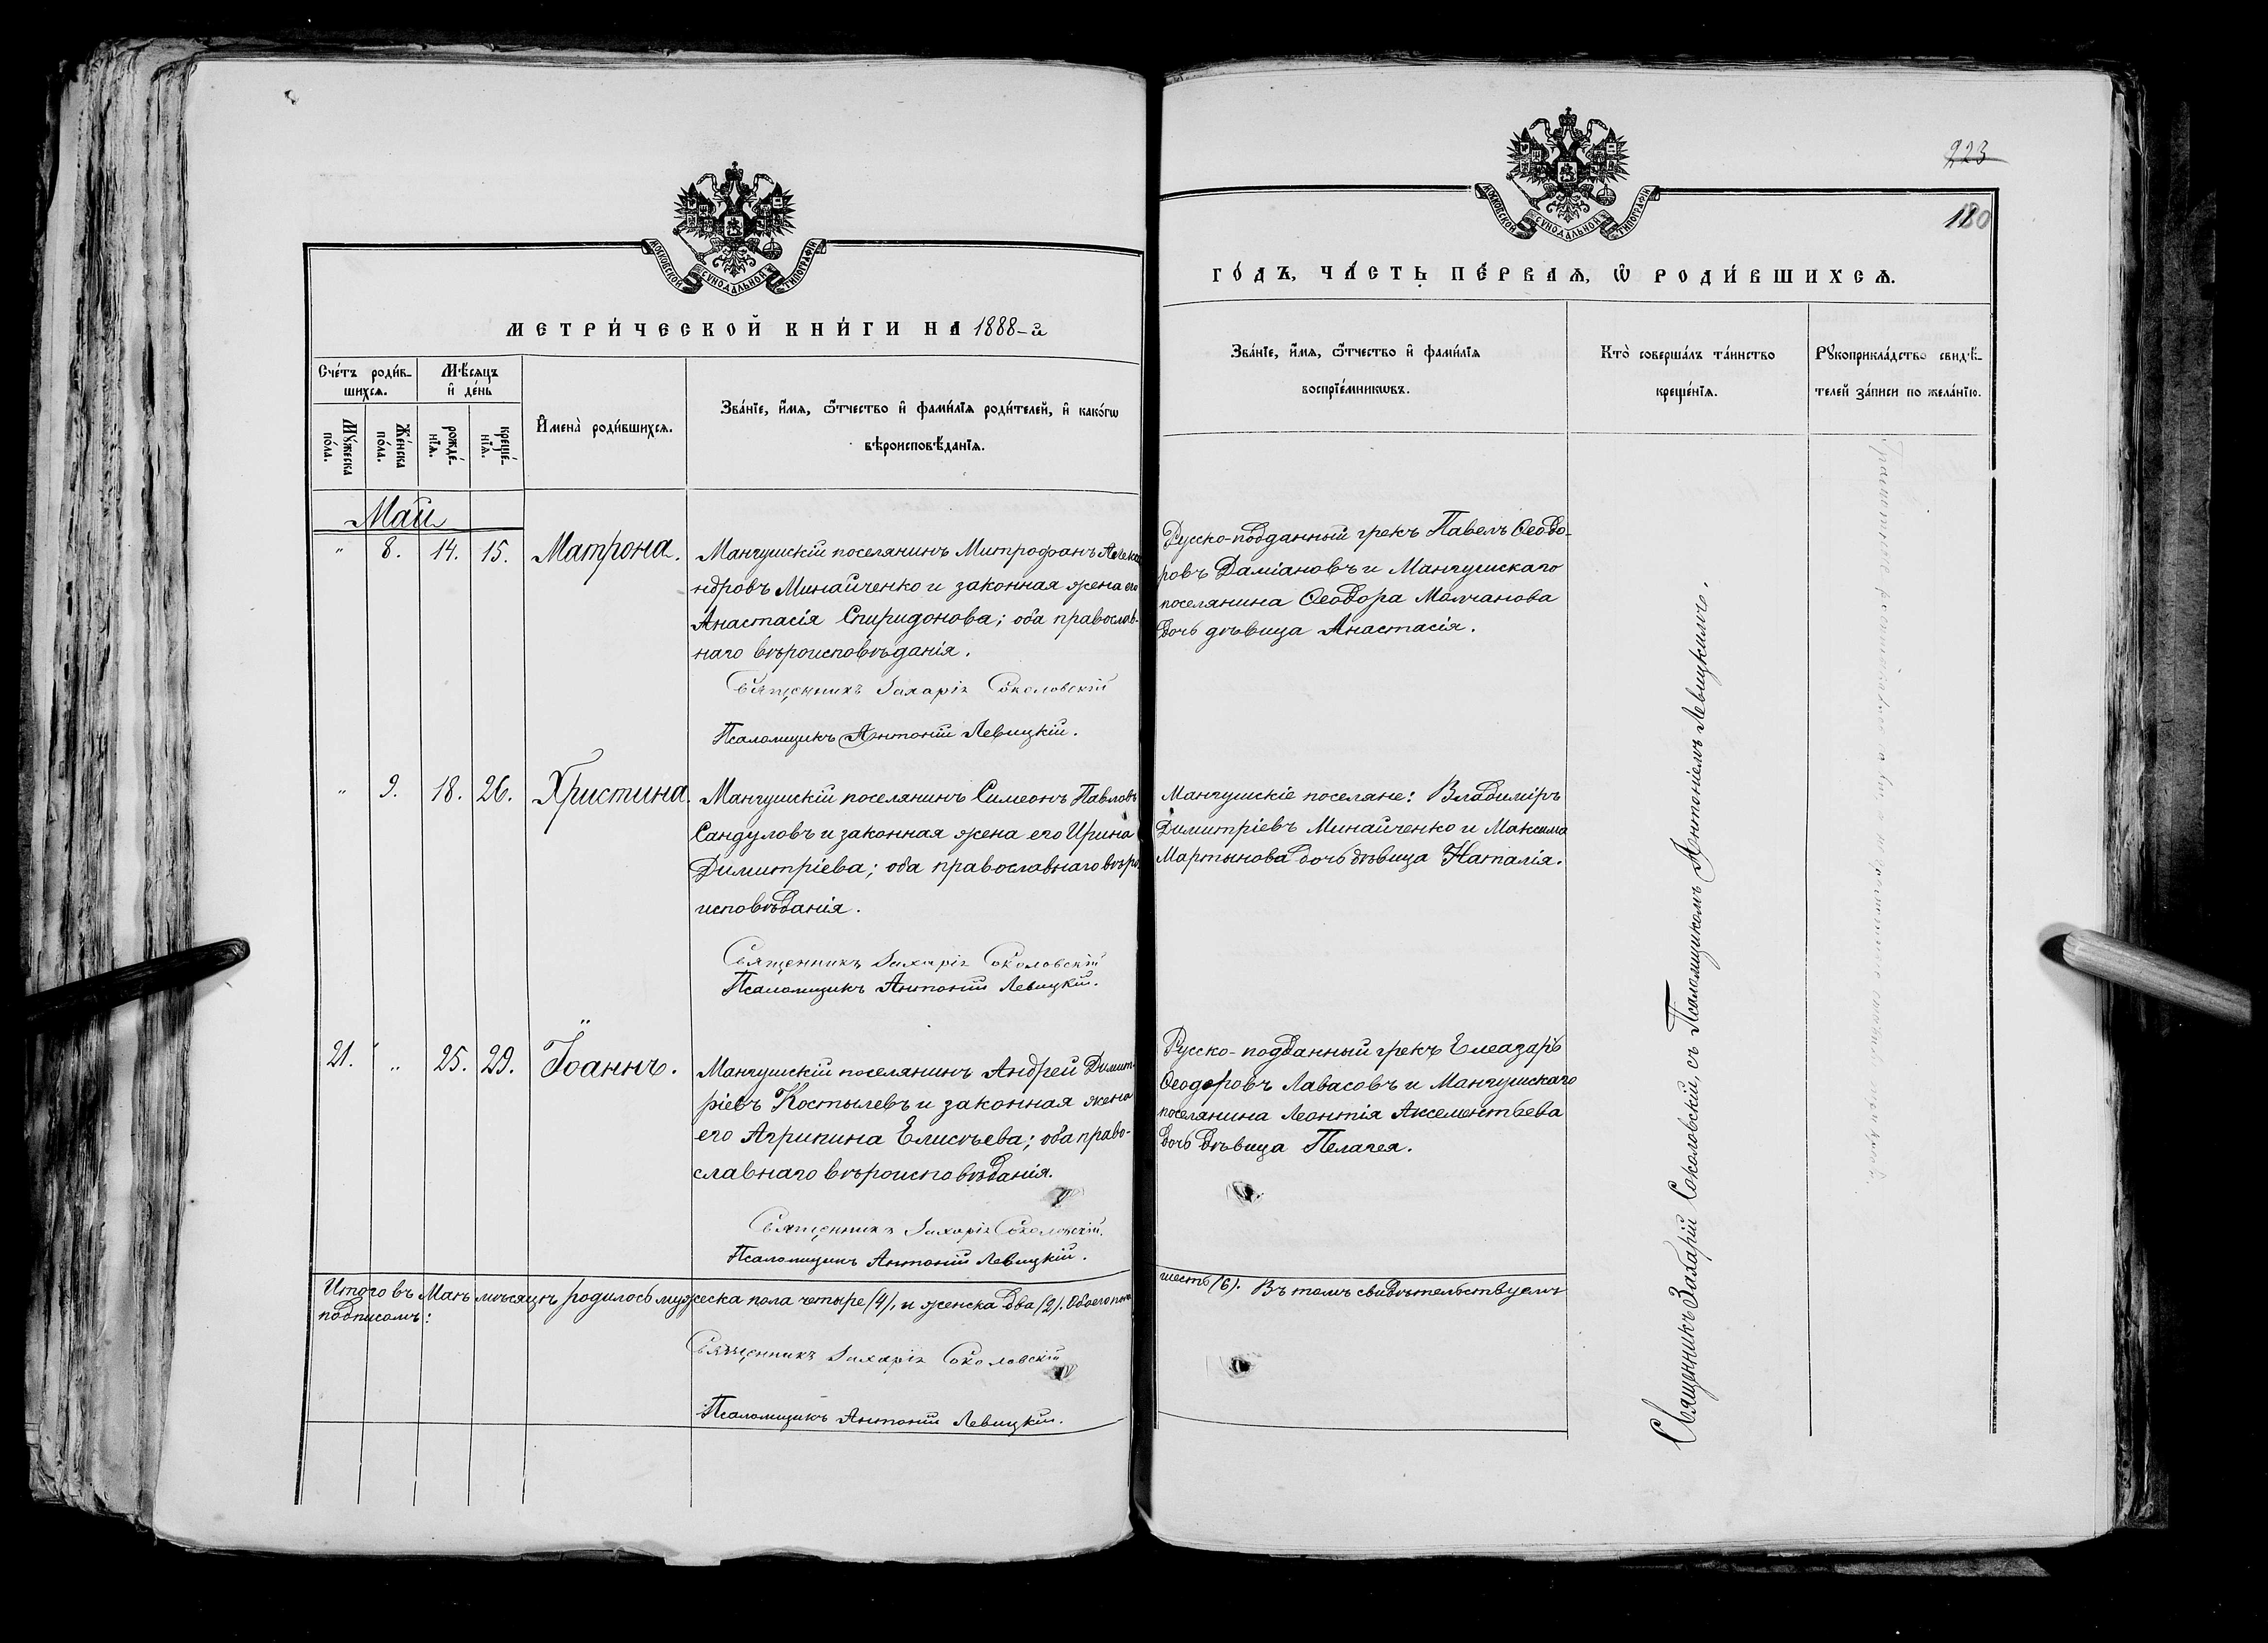 МОСКОВСКОЙ СѴНОДАЛЬНОЙ ТИПОГРАФІИ
МЕТРИ́ЧЕСКОЙ КНИ́ГИ НА 1888-й
Сче́тъ роди́в-
шихсѧ.
Мѣ́сѧцъ
и҆ де́нь
Мꙋ́жеска
по́ла.
Же́нска
по́ла.
рожде́-
нїѧ.
креще́-
нїѧ.
И҆мена̀ роди́вшихсѧ.
Зва́нїе, и҆́мѧ, ѻ҆́тчество и҆ фами́лїѧ роди́телей, и҆ како́гѡ
вѣроисповѣ́данїѧ.
Май
" 8. 14. 15. Матрона.
Мангушскій поселянинъ Митрофанъ Алекса
ндровъ Минайченко и законная жена его
Анастасія Спиридонова; оба православ-
наго вѣроисповѣданія.
Священникъ Захарія Соколовскій
Псаломщикъ Антоній Левицкій.
" 9. 18. 26. Христина.
Мангушскій поселянинъ Симеонъ Павловъ
Сандуловъ и законная жена его Ирина
Димитріева; оба православнаго вѣро
исповѣданія.
Священникъ Захарія Соколовскій
Псаломщикъ Антоній Левицкій.
21. " 25. 29. Іоаннъ.
Мангушскій поселянинъ Андрей Димит
ріевъ Костылевъ и законная жена
его Агрипина Елисѣева; оба право-
славнаго вѣроисповѣданія.
Священникъ Захарія Соколовскій.
Псаломщикъ Антоній Левицкій.
Итого въ Маѣ мѣсяцѣ родилось мужеска пола четыре (4), и женска два (2). Обоего пола
подписомъ:
Священникъ Захарія Соколовскій
Псаломщикъ Антоній Левицкій.
223
180
МОСКОВСКОЙ СѴНОДАЛЬНОЙ ТИПОГРАФІИ
ГО́ДЪ, ЧА́СТЬ ПЕ́РВАѦ, Ѡ҆ РОДИ́ВШИХСѦ.
Зва́нїе, и҆́мѧ, ѻ҆́тчество и҆ фами́лїѧ
воспрїе́мникѡвъ.
Кто̀ соверша́лъ та́инство
креще́нїѧ.
Рꙋкоприкла́дство свидѣ́-
телей за́писи по жела́нїю.
Русско-подданный грекъ Павелъ Ѳеодо-
ровъ Даміановъ и Мангушскаго
поселянина Ѳеодора Молчанова
дочь дѣвица Анастасія.
Мангушскіе поселяне: Владиміръ
Димитріевъ Минайченко и Максима
Мартынова дочь дѣвица Наталія.
Русско-подданный грекъ Елеазаръ
Ѳеодоровъ Лавасовъ и Мангушскаго
поселянина Леонтія Аксементьева
дочь дѣвица Пелагея.
шесть (6). Въ томъ свидѣтельствуемъ
Священникъ Захарій Соколовскій, съ Псаломщикомъ Антоніемъ Левицкимъ.